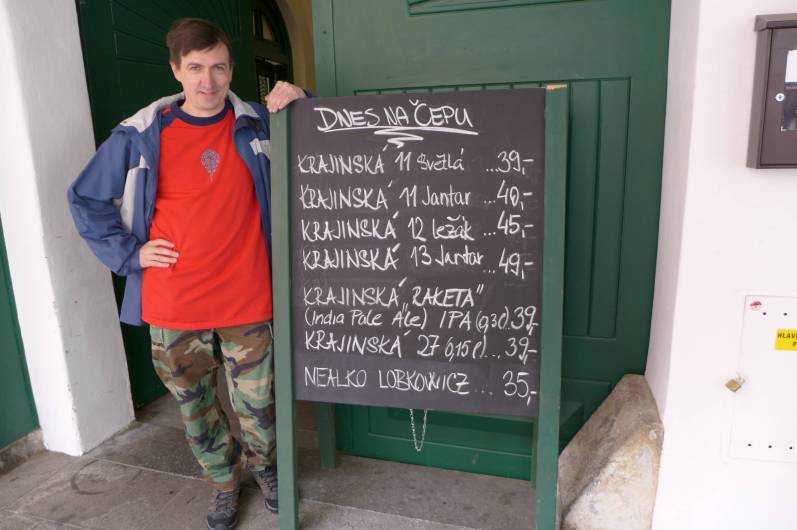 DNES NA ČEPU
KRAJINSKÁ 11 Světlá ...39,-
KRAJINSKÁ 11 Jantar ...40,-
KRAJINSKÁ 12 ležák ...45,-
KRAJINSKÁ 13 Jantar ...49,-
KRAJINSKÁ „RAKETA"
(India Pale Ale) IPA (0,3l) 39,-
KRAJINSKÁ 27 (0,15l)... 39,-
NEALKO LOBKOWICZ ... 35,-